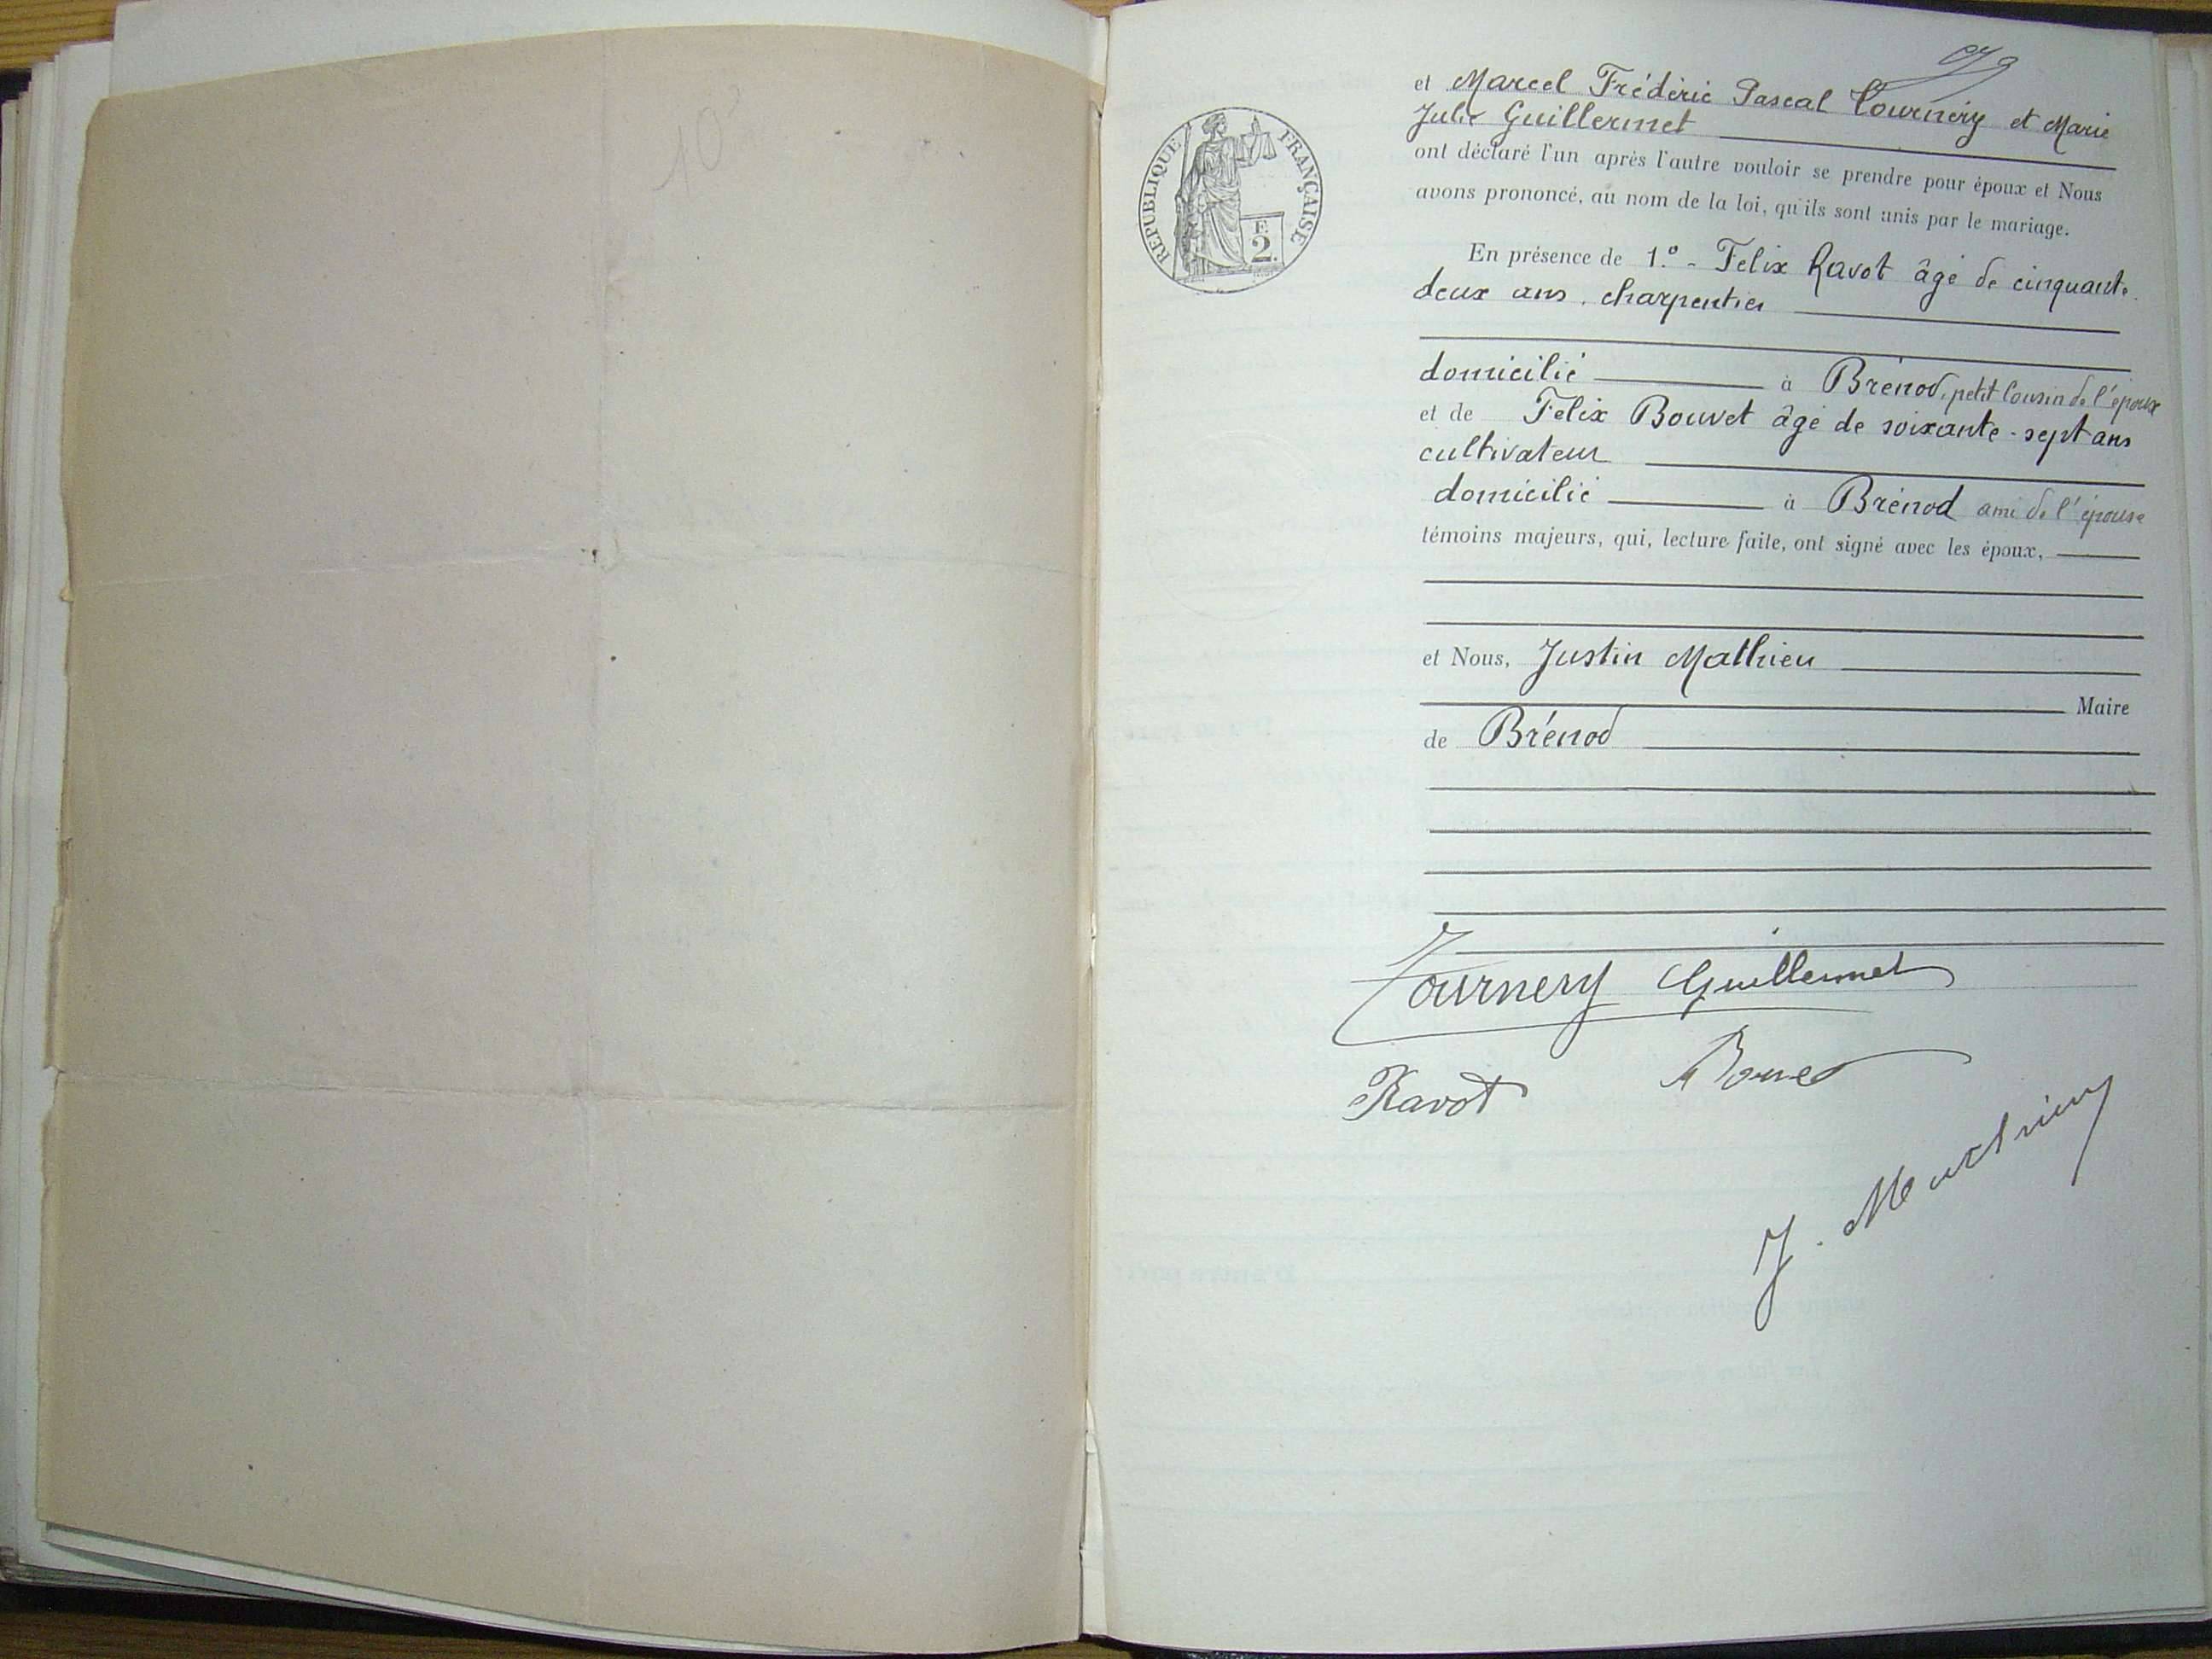 10
et Marcel Frédéric Pascal Tournery et Marie
Julie Guillermet
ont déclaré l'un après l'autre vouloir se prendre pour époux et Nous
avons prononcé, au nom de la loi, qu'ils sont unis par le mariage.
REPUBLIQUE FRANÇAISE
F.
2.
En présence de 1.º - Felix Ravot âgé de cinquante.
deux ans, charpentier
domicilié à Brénod, petit cousin de l'époux
et de Felix Bouvet âgé de soixante-sept ans
cultivateur
domicilié à Brénod ami de l'épouse
témoins majeurs, qui, lecture faite, ont signé avec les époux,
et Nous, Justin Mathieu
Maire
de Brénod
Tournery Guillermet
Ravot Bouvet
J. Mathieu